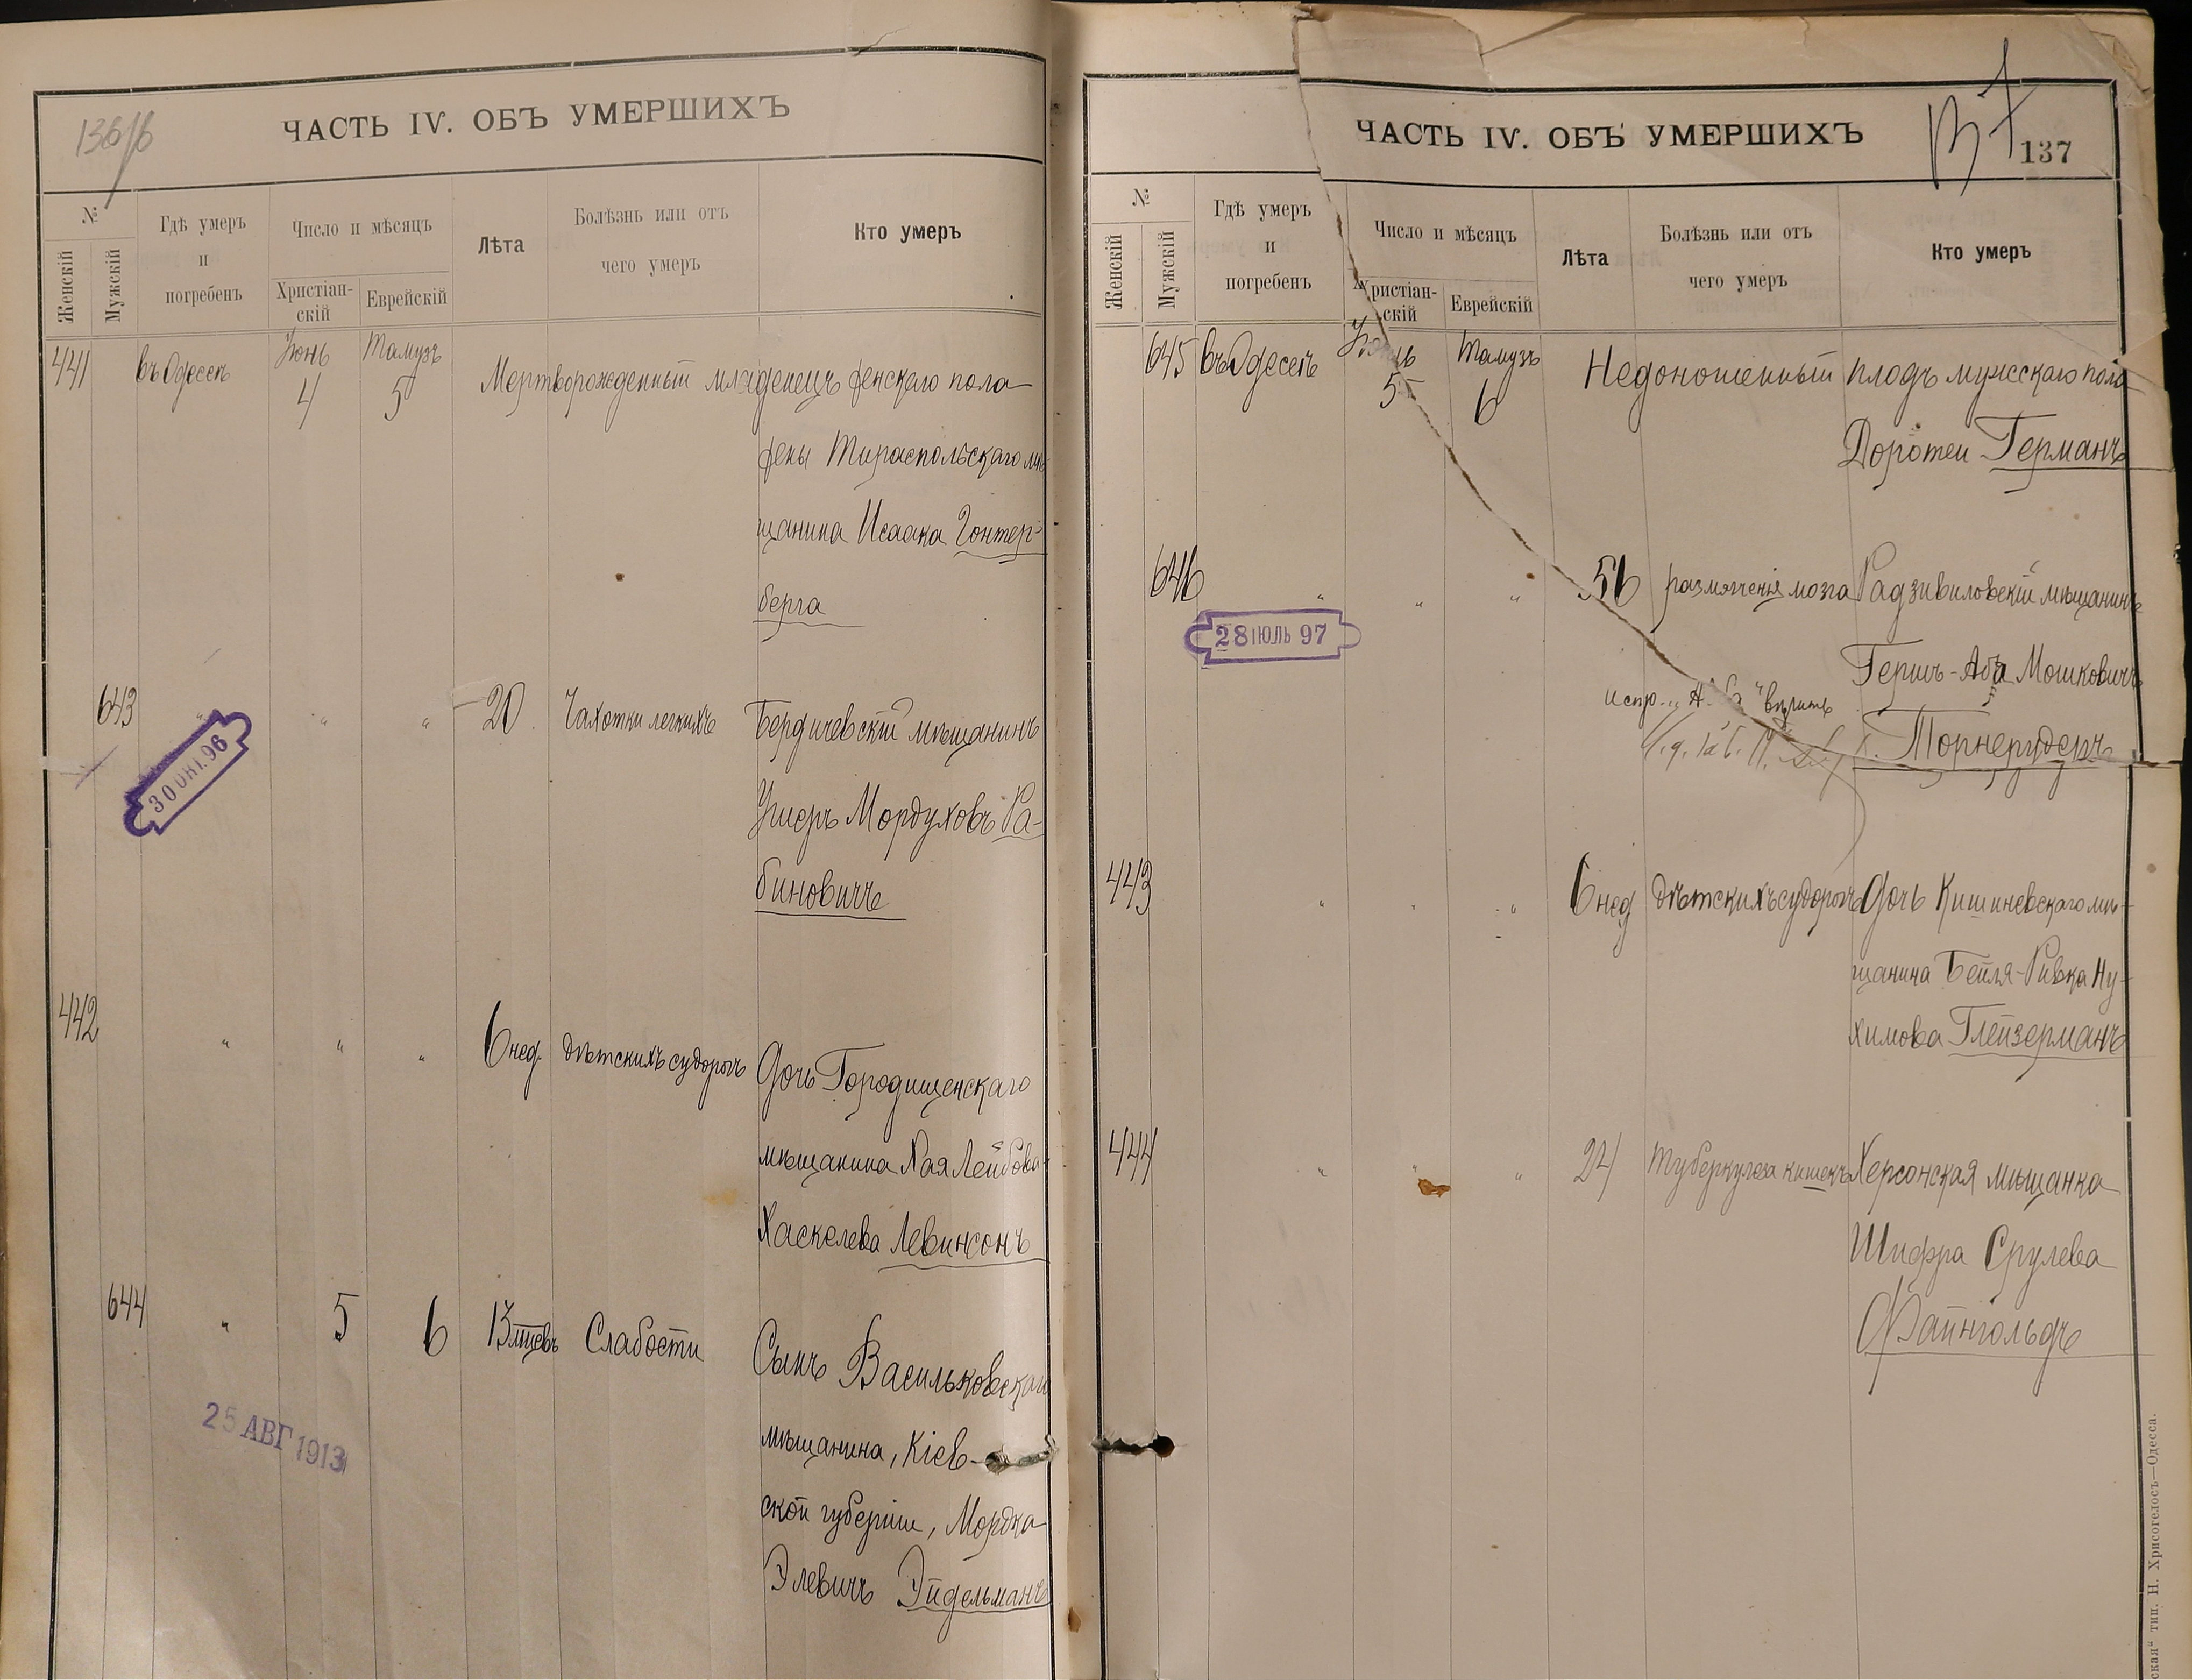 136/б
ЧАСТЬ IV. ОБЪ УМЕРШИХЪ
№
Женскій
Мужскій
Гдѣ умеръ
и
погребенъ
Число и мѣсяцъ
Христіан-
скій
Еврейскій
Лѣта
Болѣзнь или отъ
чего умеръ
Кто умеръ
441 въ Одессѣ Іюнь 4 Тамузъ 5 Мертворожденный младенецъ женскаго пола
жены Тираспольскаго мѣ-
щанина Исаака Гонтер-
берга
643 " " " 20 Чахотки легкихъ Бердичевскій мѣщанинъ
30 ОКТ. 96
Ушеръ Мордуховъ Ра-
биновичъ
442 " " " 6 нед. дѣтскихъ судорогъ Дочь Городищенскаго
мѣщанина Хая Лейбова-
Хаскелева Левинсонъ
644 " 5 6 13 мѣсцевъ Слабости Сынъ Васильковскаго
25 АВГ 1913
мѣщанина, Кіев-
ской губерніи, Мордка
Элевичъ Эйдельманъ
ЧАСТЬ IV. ОБЪ УМЕРШИХЪ
137
137
№
Женскій
Мужскій
Гдѣ умеръ
и
погребенъ
Число и мѣсяцъ
Христіан-
скій
Еврейскій
Лѣта
Болѣзнь или отъ
чего умеръ
Кто умеръ
645 въ Одессѣ Іюнь 5 Тамузъ 6 Недоношенный плодъ мужскаго пола
Доротеи Германъ
646 " " " 56 размягченія мозга Радзивиловскій мѣщанинъ
28 ІЮЛЬ 97
Гершъ-Аба Мошковичъ
испр. вѣрить
Торнерудеръ
443 " " " 6 нед дѣтскихъ судорогъ Дочь Кишиневскаго мѣ-
щанина Бейля-Ривка Ну-
химова Глейзерманъ
444 " " " 24 туберкулеза кишекъ Херсонская мѣщанка
Шифра Срулева
Файнгольдъ
ская" тип. Н. Хрисогелосъ—Одесса.